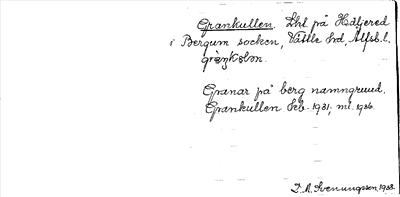 Grankullen. Lht på Hedjered
i Bergum socken, Vättle hd, Älfsb. l.
Granar på berg namngrund.
Grankullen Feb. 1931, ml. 1936.
D. A. Svenungsson 1938.